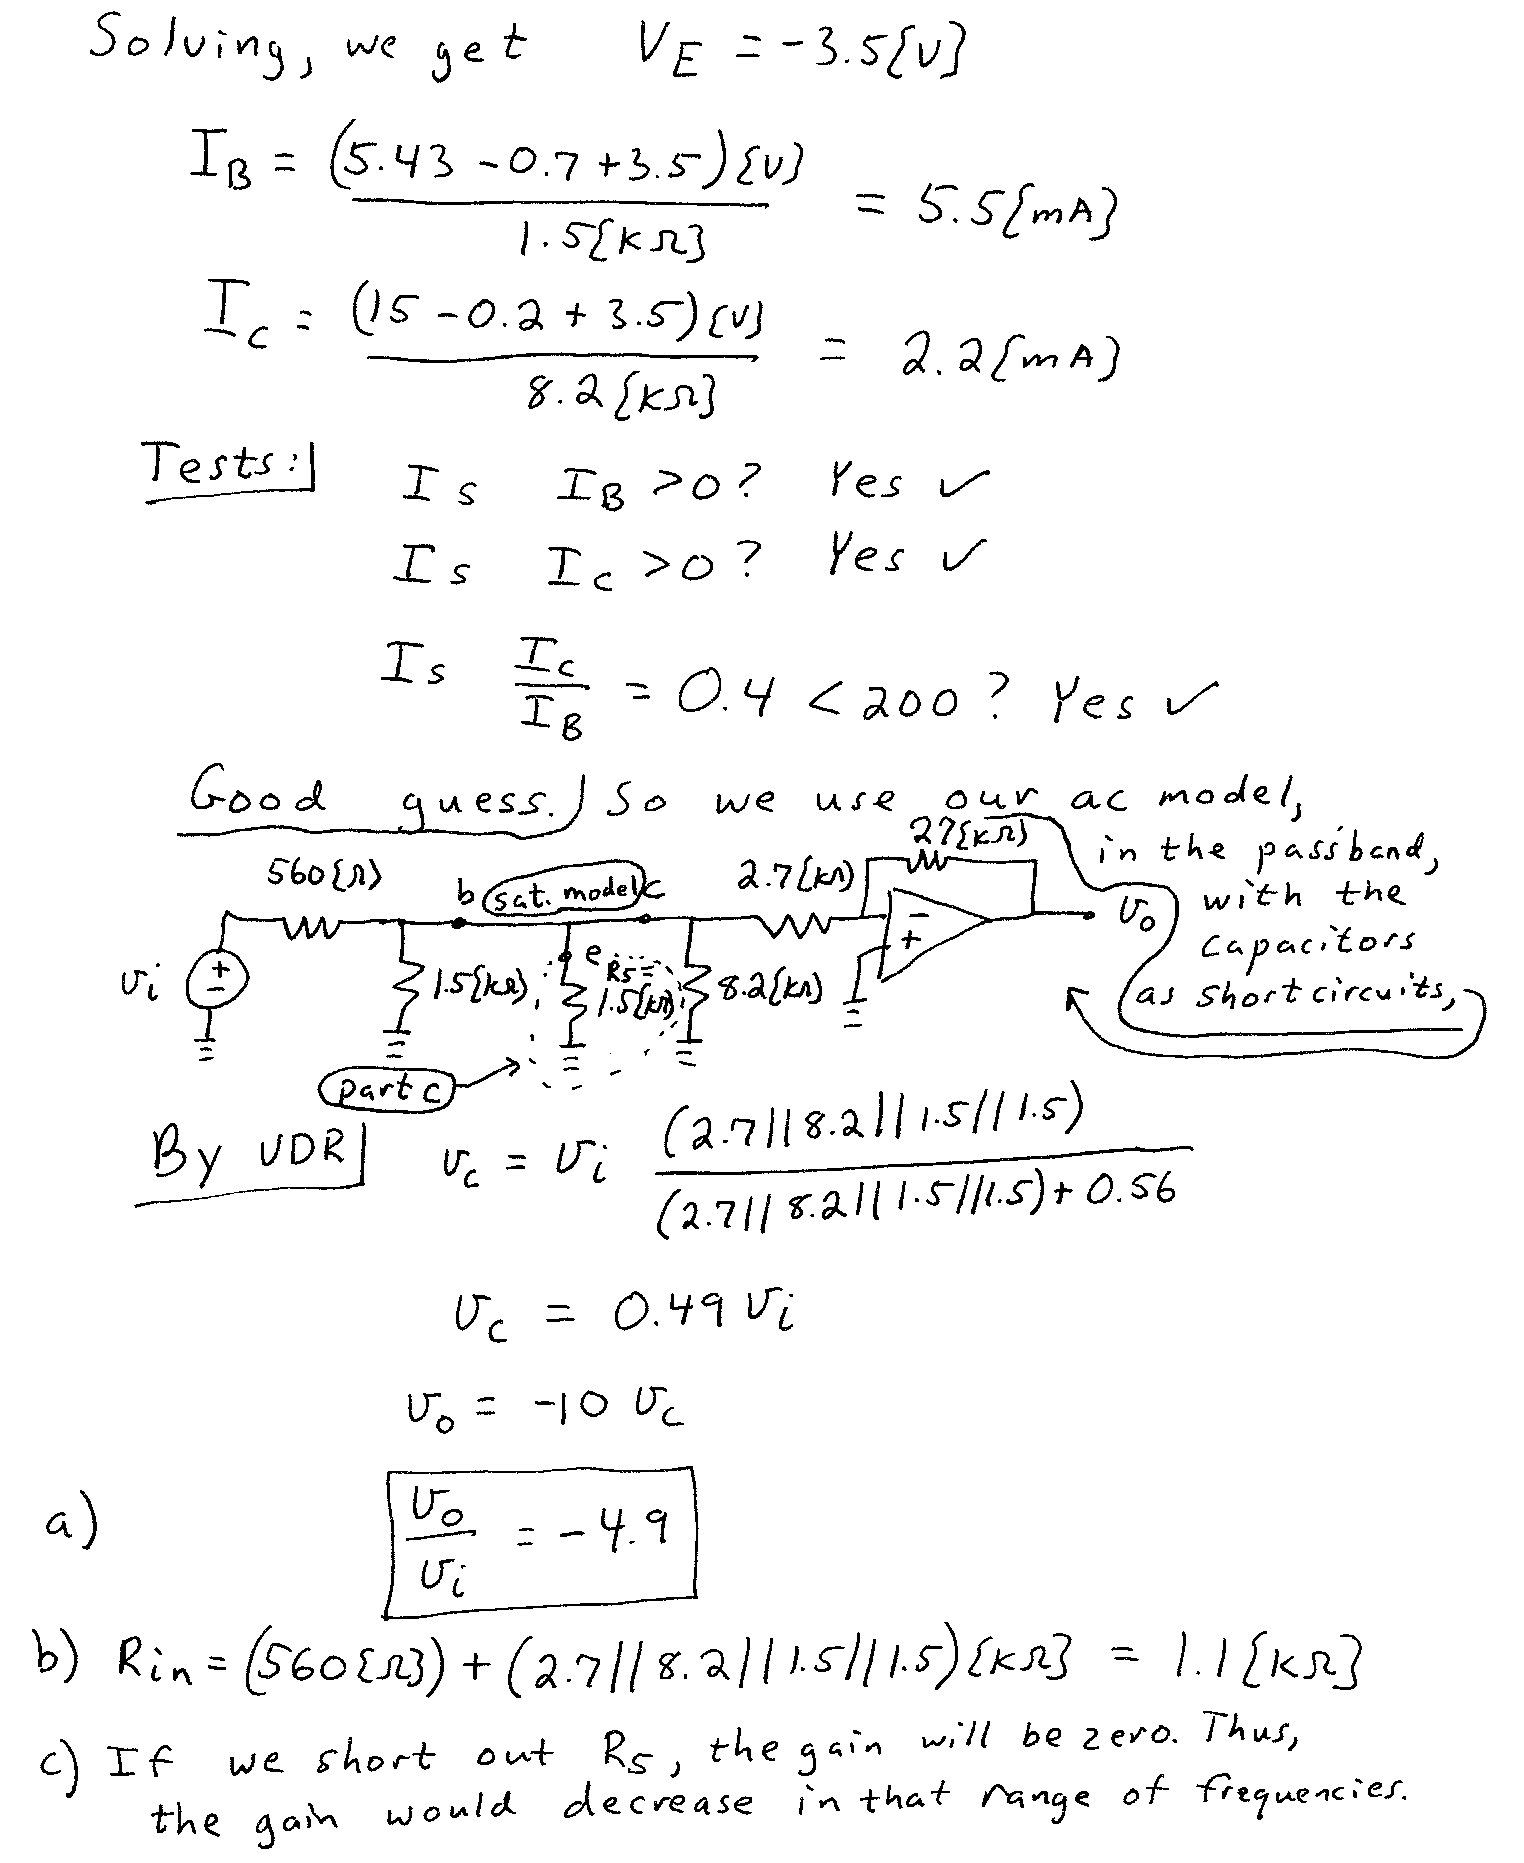 Solving, we get V_E = -3.5{V}
I_B = (5.43 - 0.7 + 3.5){V} / 1.5{kΩ} = 5.5{mA}
I_C = (15 - 0.2 + 3.5){V} / 8.2{kΩ} = 2.2{mA}
Tests: Is I_B > 0? Yes ✓
Is I_C > 0? Yes ✓
Is I_C / I_B = 0.4 < 200? Yes ✓
Good guess. So we use our ac model,
in the passband,
with the
capacitors
as short circuits,
27{kΩ}
560{Ω} b sat. model c 2.7{kΩ}
v_o
v_i + - 1.5{kΩ} e R5 = 1.5{kΩ} 8.2{kΩ} - +
part c
By VDR v_c = v_i (2.7||8.2||1.5||1.5) / (2.7||8.2||1.5||1.5) + 0.56
v_c = 0.49 v_i
v_o = -10 v_c
a) v_o / v_i = -4.9
b) Rin = (560{Ω}) + (2.7||8.2||1.5||1.5){kΩ} = 1.1{kΩ}
c) If we short out R5, the gain will be zero. Thus,
the gain would decrease in that range of frequencies.